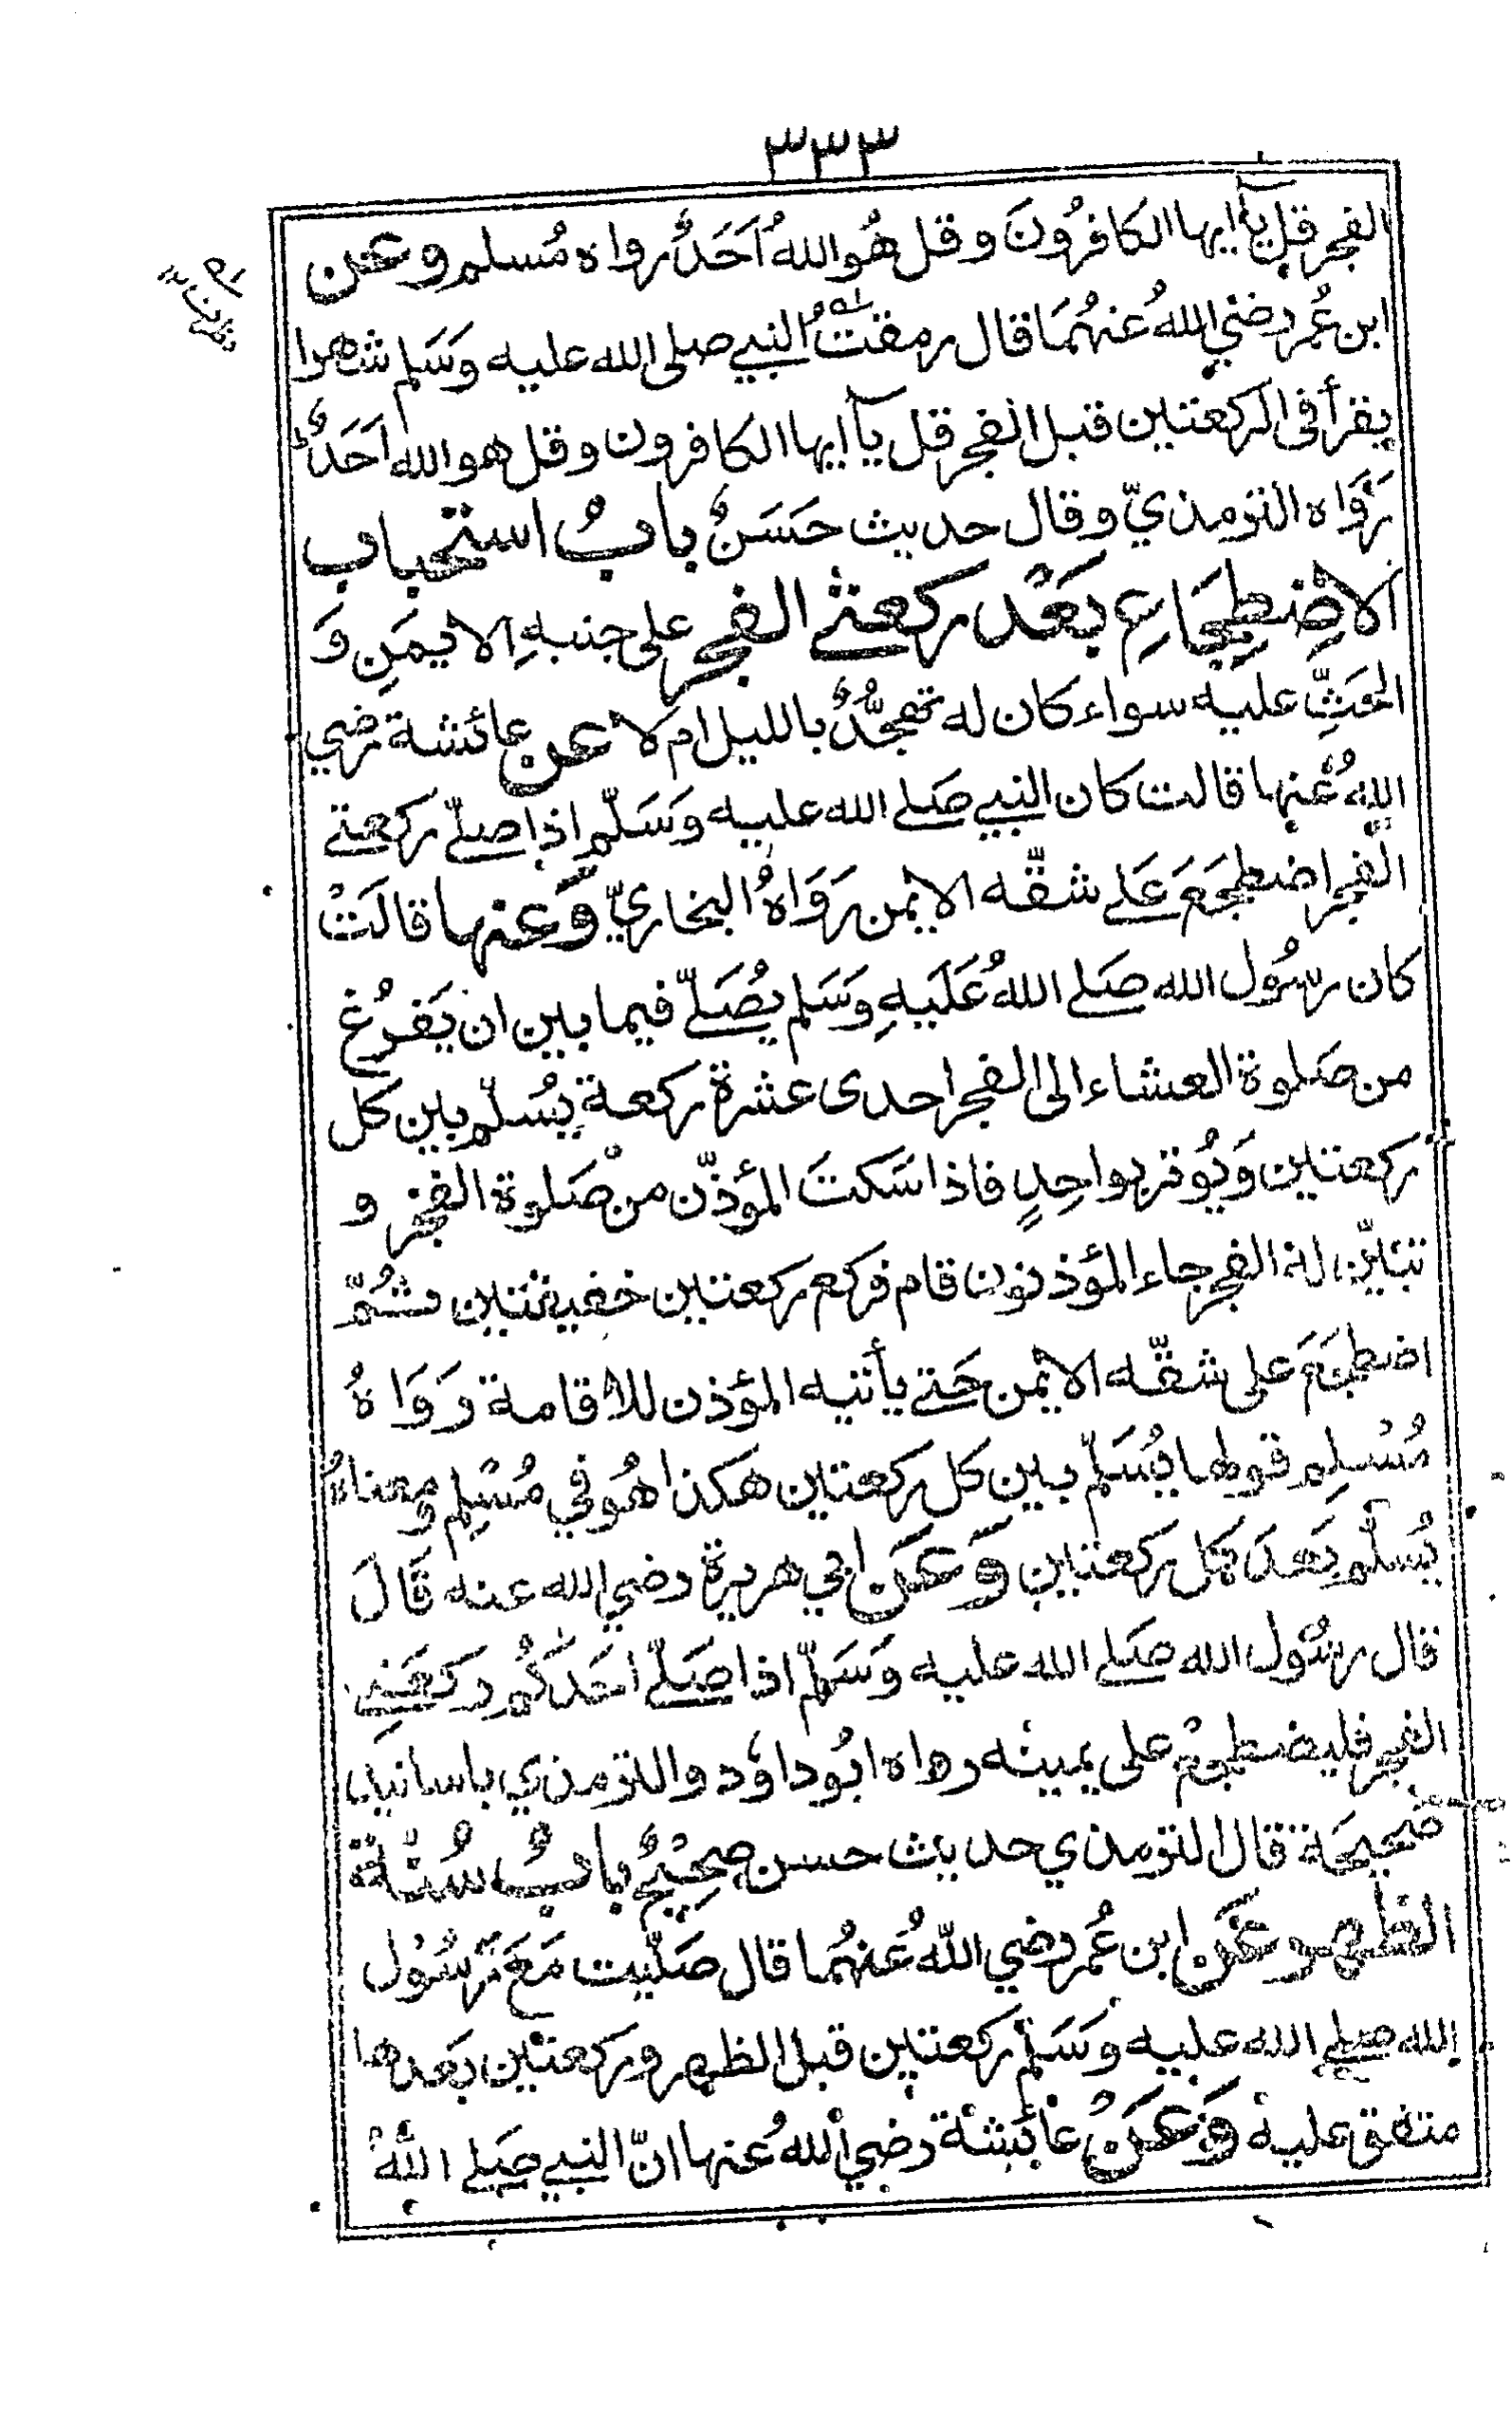 ٣٣٣
الفجر قل يآ ايها الكافرُونَ وقل هُو اللهُ اَحَدٌ رواه مُسلم وعن
ابن عُمر رضي اللهُ عنهُمَا قال رمقتُ النبي صلى الله عليه وَسَلم شهرا
يقرأ فى الركعتين قبل الفجر قل يآ ايها الكافرون وقل هو الله اَحَدٌ
رَوَاه الترمذيّ وقال حديث حَسَنٌ بابُ استحباب
الاضِطِجَاعِ بَعْد ركعتي الفجر على جنبهِ الايمَنِ وَ
الحَثِّ عليه سواء كان له تهجُّدٌ بالليل ام لا عن عائشة رضي
اللهُ عُنها قالت كان النبي صَلى الله عليه وَسَلّم اذا صلّى ركعتي
الفجر اضطجَعَ عَلى شقّه الايمن رَوَاهُ البخاريّ وَعنها قالَتْ
كان رسُول الله صَلى اللهُ عَلَيهِ وَسَلم يُصَلّي فيما بين ان يَفرُغ
من صَلوة العشاء الى الفجر احدى عشرة ركعة يُسلّم بين كل
ركعتين وَيُوتر بواحِدٍ فاذا سَكتَ المؤذّن منْ صَلوة الفجر و
تبَيّن له الفجر جاء المؤذنون قام فركع ركعتين خفيفتين ثُمّ
اضطجَعَ على شقّه الايمن حَتى يأتيه المؤذن للاقامة رَوَاهُ
مُسْلِم قولها يُسَلّم بين كل ركعتين هكذا هُو في مُسْلِم ومعناهُ
يُسلّم بَعدَ كل ركعتين وَعَن ابي هريرة رضي الله عنه قَالَ
قال رسُول الله صَلى الله عليه وَسَلّم اذا صَلّى احَدُكُم ركعَتي
الفجر فليضطجعْ على يمينه رواه ابُو داؤد والترمذي باسانيد
صَحيحَة قال الترمذي حديث حسن صَحِيْحٌ بابُ سُنّة
الظهر وعَن ابن عُمر رضي اللهُ عَنهُما قال صَلّيت مَعَ رَسُوْل
الله صلى الله عليه وَسَلّم ركعتين قبل الظهر وركعتين بَعدها
متفق عليه وَعَنْ عائشة رضي اللهُ عنها انّ النبي صَلى اللهُ